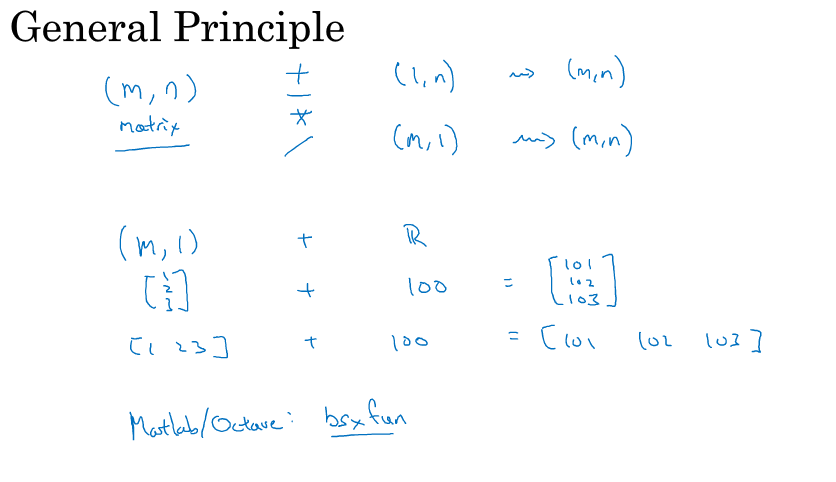 General Principle
(m, n) + (1, n) ⇝ (m, n)
matrix - * / (m, 1) ⇝ (m, n)
(m, 1) + ℝ
[1 2 3] + 100 = [101 102 103]
[1 2 3] + 100 = [101 102 103]
Matlab/Octave: bsxfun